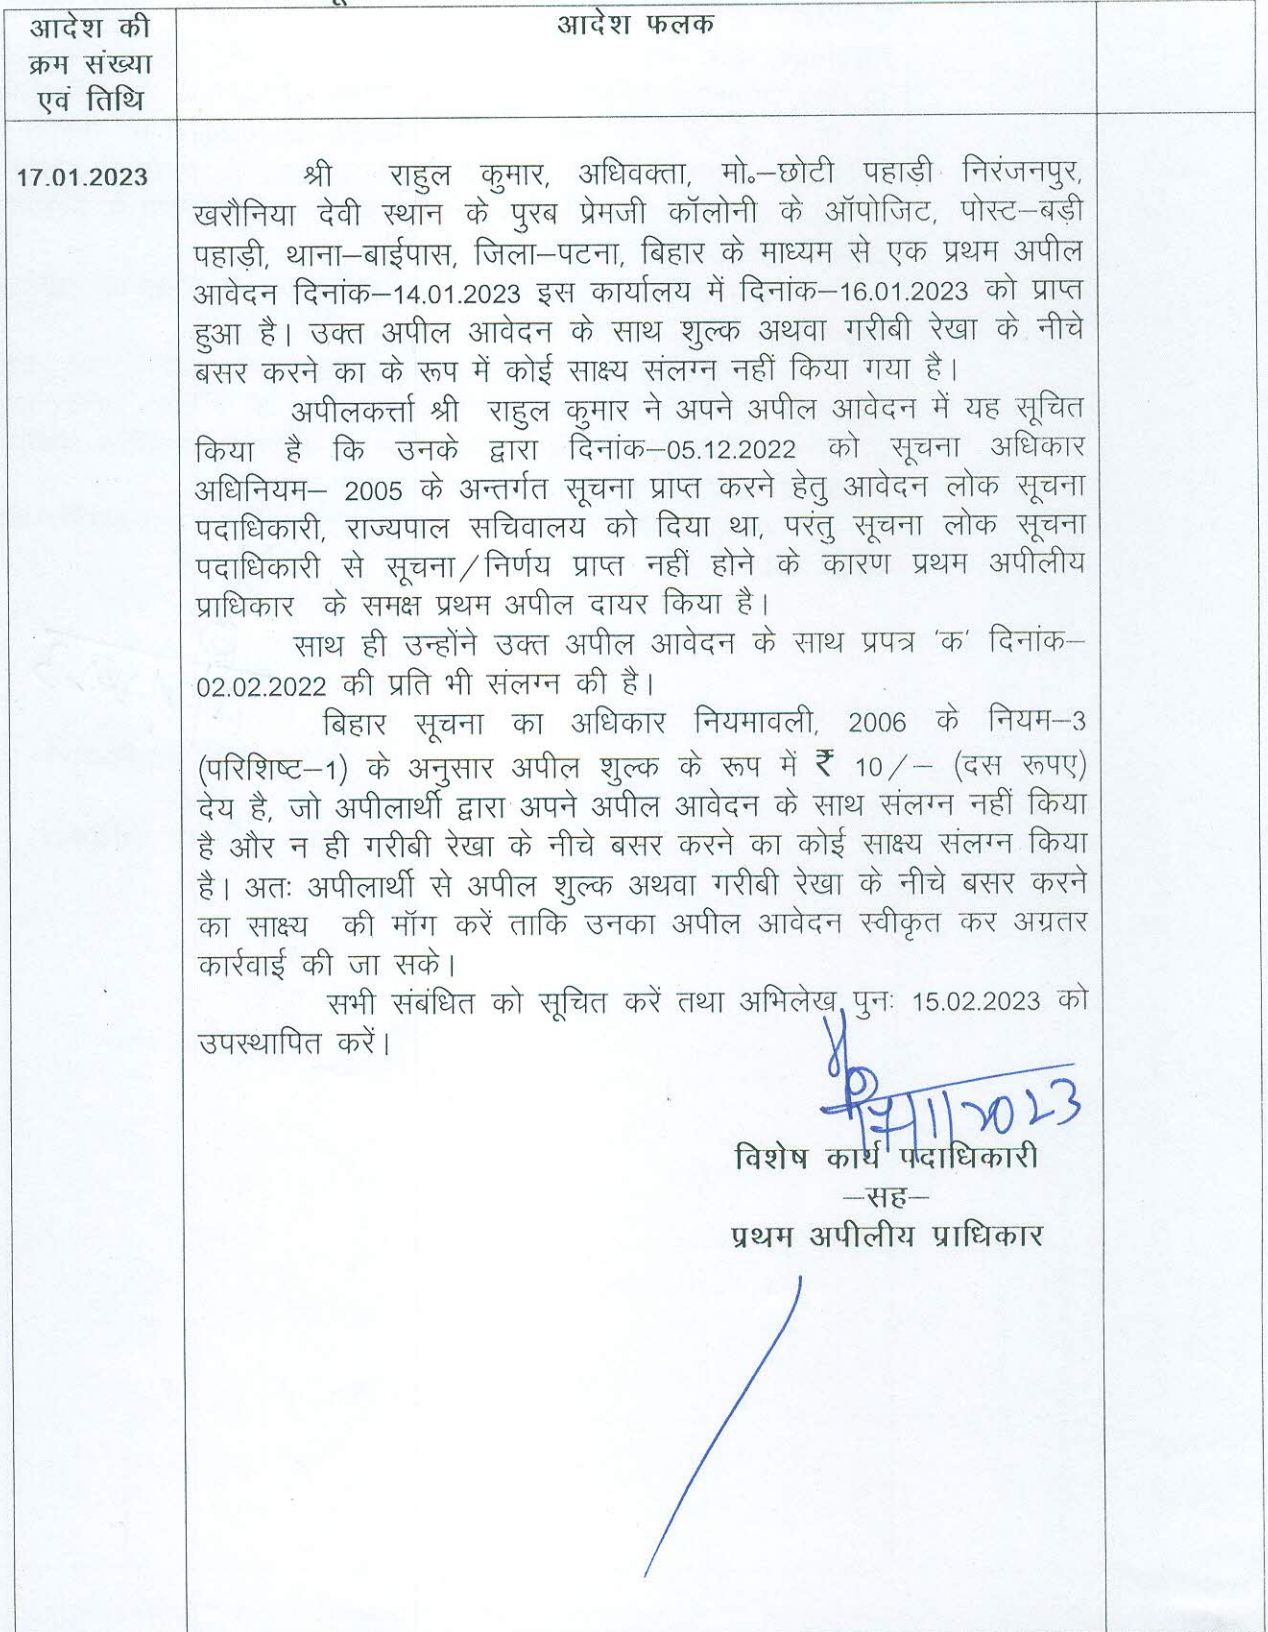 आदेश की
क्रम संख्या
एवं तिथि
आदेश फलक
17.01.2023
श्री राहुल कुमार, अधिवक्ता, मो०–छोटी पहाड़ी निरंजनपुर,
खरौनिया देवी स्थान के पुरब प्रेमजी कॉलोनी के ऑपोजिट, पोस्ट–बड़ी
पहाड़ी, थाना–बाईपास, जिला–पटना, बिहार के माध्यम से एक प्रथम अपील
आवेदन दिनांक–14.01.2023 इस कार्यालय में दिनांक–16.01.2023 को प्राप्त
हुआ है। उक्त अपील आवेदन के साथ शुल्क अथवा गरीबी रेखा के नीचे
बसर करने का के रूप में कोई साक्ष्य संलग्न नहीं किया गया है।
अपीलकर्त्ता श्री राहुल कुमार ने अपने अपील आवेदन में यह सूचित
किया है कि उनके द्वारा दिनांक–05.12.2022 को सूचना अधिकार
अधिनियम– 2005 के अन्तर्गत सूचना प्राप्त करने हेतु आवेदन लोक सूचना
पदाधिकारी, राज्यपाल सचिवालय को दिया था, परंतु सूचना लोक सूचना
पदाधिकारी से सूचना/निर्णय प्राप्त नहीं होने के कारण प्रथम अपीलीय
प्राधिकार के समक्ष प्रथम अपील दायर किया है।
साथ ही उन्होंने उक्त अपील आवेदन के साथ प्रपत्र 'क' दिनांक–
02.02.2022 की प्रति भी संलग्न की है।
बिहार सूचना का अधिकार नियमावली, 2006 के नियम–3
(परिशिष्ट–1) के अनुसार अपील शुल्क के रूप में ₹ 10/– (दस रूपए)
देय है, जो अपीलार्थी द्वारा अपने अपील आवेदन के साथ संलग्न नहीं किया
है और न ही गरीबी रेखा के नीचे बसर करने का कोई साक्ष्य संलग्न किया
है। अतः अपीलार्थी से अपील शुल्क अथवा गरीबी रेखा के नीचे बसर करने
का साक्ष्य की मॉग करें ताकि उनका अपील आवेदन स्वीकृत कर अग्रतर
कार्रवाई की जा सके।
सभी संबंधित को सूचित करें तथा अभिलेख पुनः 15.02.2023 को
उपस्थापित करें।
17/1/2023
विशेष कार्य पदाधिकारी
–सह–
प्रथम अपीलीय प्राधिकार